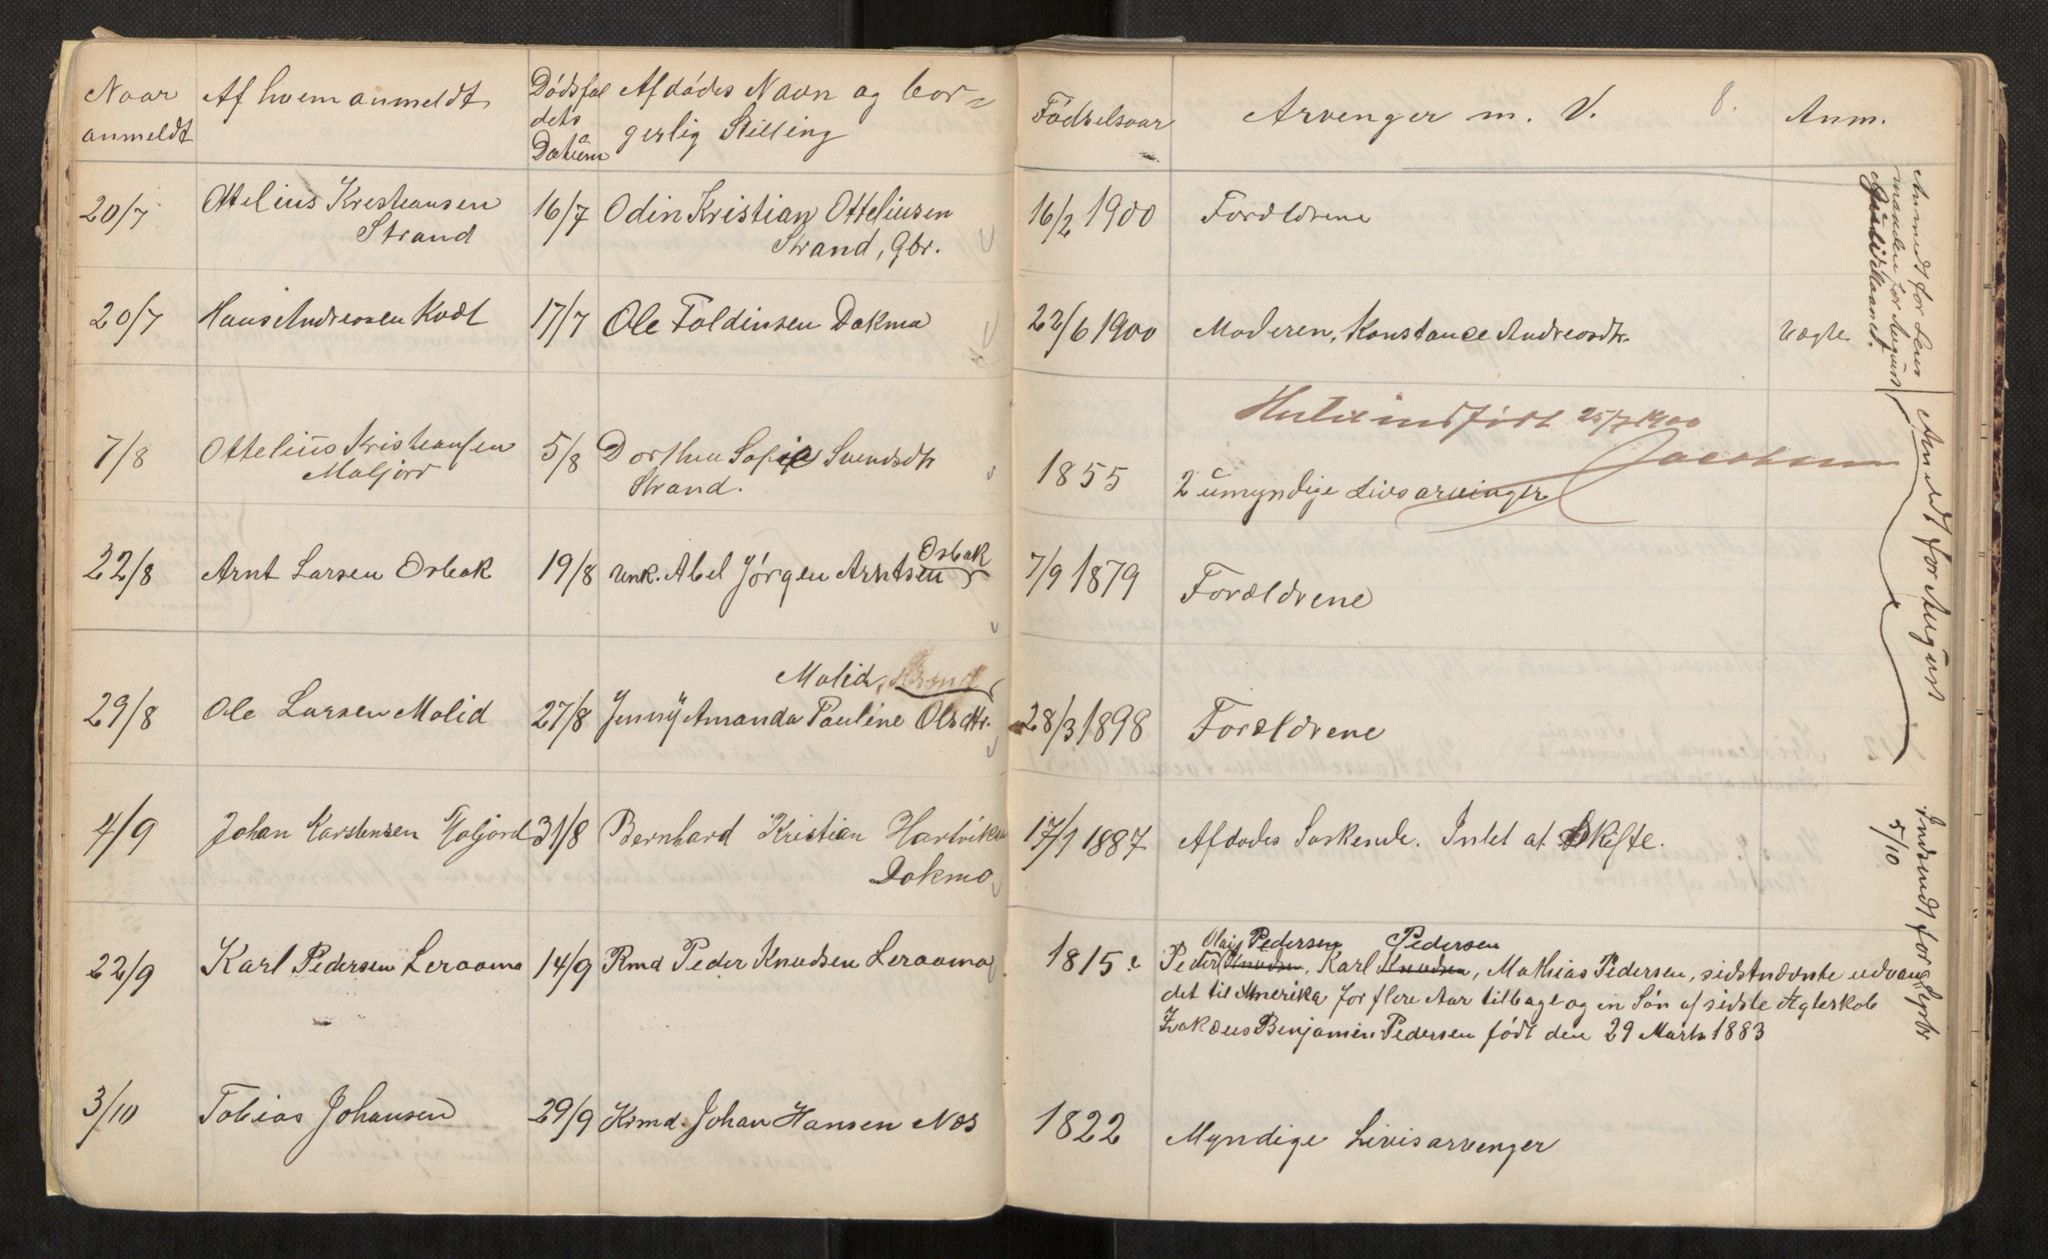 Naar anmeldt | Af hvem anmeldt | Dødsfaldets Datum | Afdødes Navn og borgerlig Stilling | Fødselsaar | Arvenger m. V. | 8. | Anm.
20/7 | Ottelius Kristiansen
Strand | 16/7 | Odin Kristian Otteliusen
Strand, Gbr. | 16/2 1900 | Forældrene
20/7 | Hans Andreasen Kvæl | 17/7 | Ole Foldinsen Dokmo | 22/6 1900 | Moderen, Konstance Andreasdtr. | Uægte
25/7 1900
Jacobsen
7/8 | Ottelius Kristiansen
| 5/8 | Dorthea Sofie Svendsdtr
Strand. | 1855 | 2 umyndige Livsarvinger
22/8 | Arnt Larsen Osbak | 19/8 | Unk. Abel Jørgen Arntsen
Osbak | 7/9 1879 | Forældrene
29/8 | Ole Larsen Molid | 27/8 | Jenny Amanda Pauline Olsdtr.
Molid, | 28/3 1898 | Forældrene
4/9 | Johan Karstensen | 31/8 | Bernhard Kristian Hartviksen
Dokmo | 17/1 1887 | Afdødes Søskende. Intet at skifte.
22/9 | Karl Pedersen Leraamo | 14/9 | Kmd Peder Knudsen Leraamo | 1815. | Olaus Pedersen Pedersen
Peder Knudsen, Karl Knudsen, Mathias Pedersen, sidstnævnte udvan
det til Amerika for flere Aar tilbage og en Søn af sidste Ægteskab
Zakæus Benjamin Pedersen født den 29 Marts 1883
3/10 | Tobias Johansen | 29/9 | Krmd. Johan Hansen Næs | 1822 | Myndige Livisarvenger
Anmeldt for Lens
manden for August
Anmeldt for August
Indsendt for Septbr
5/10